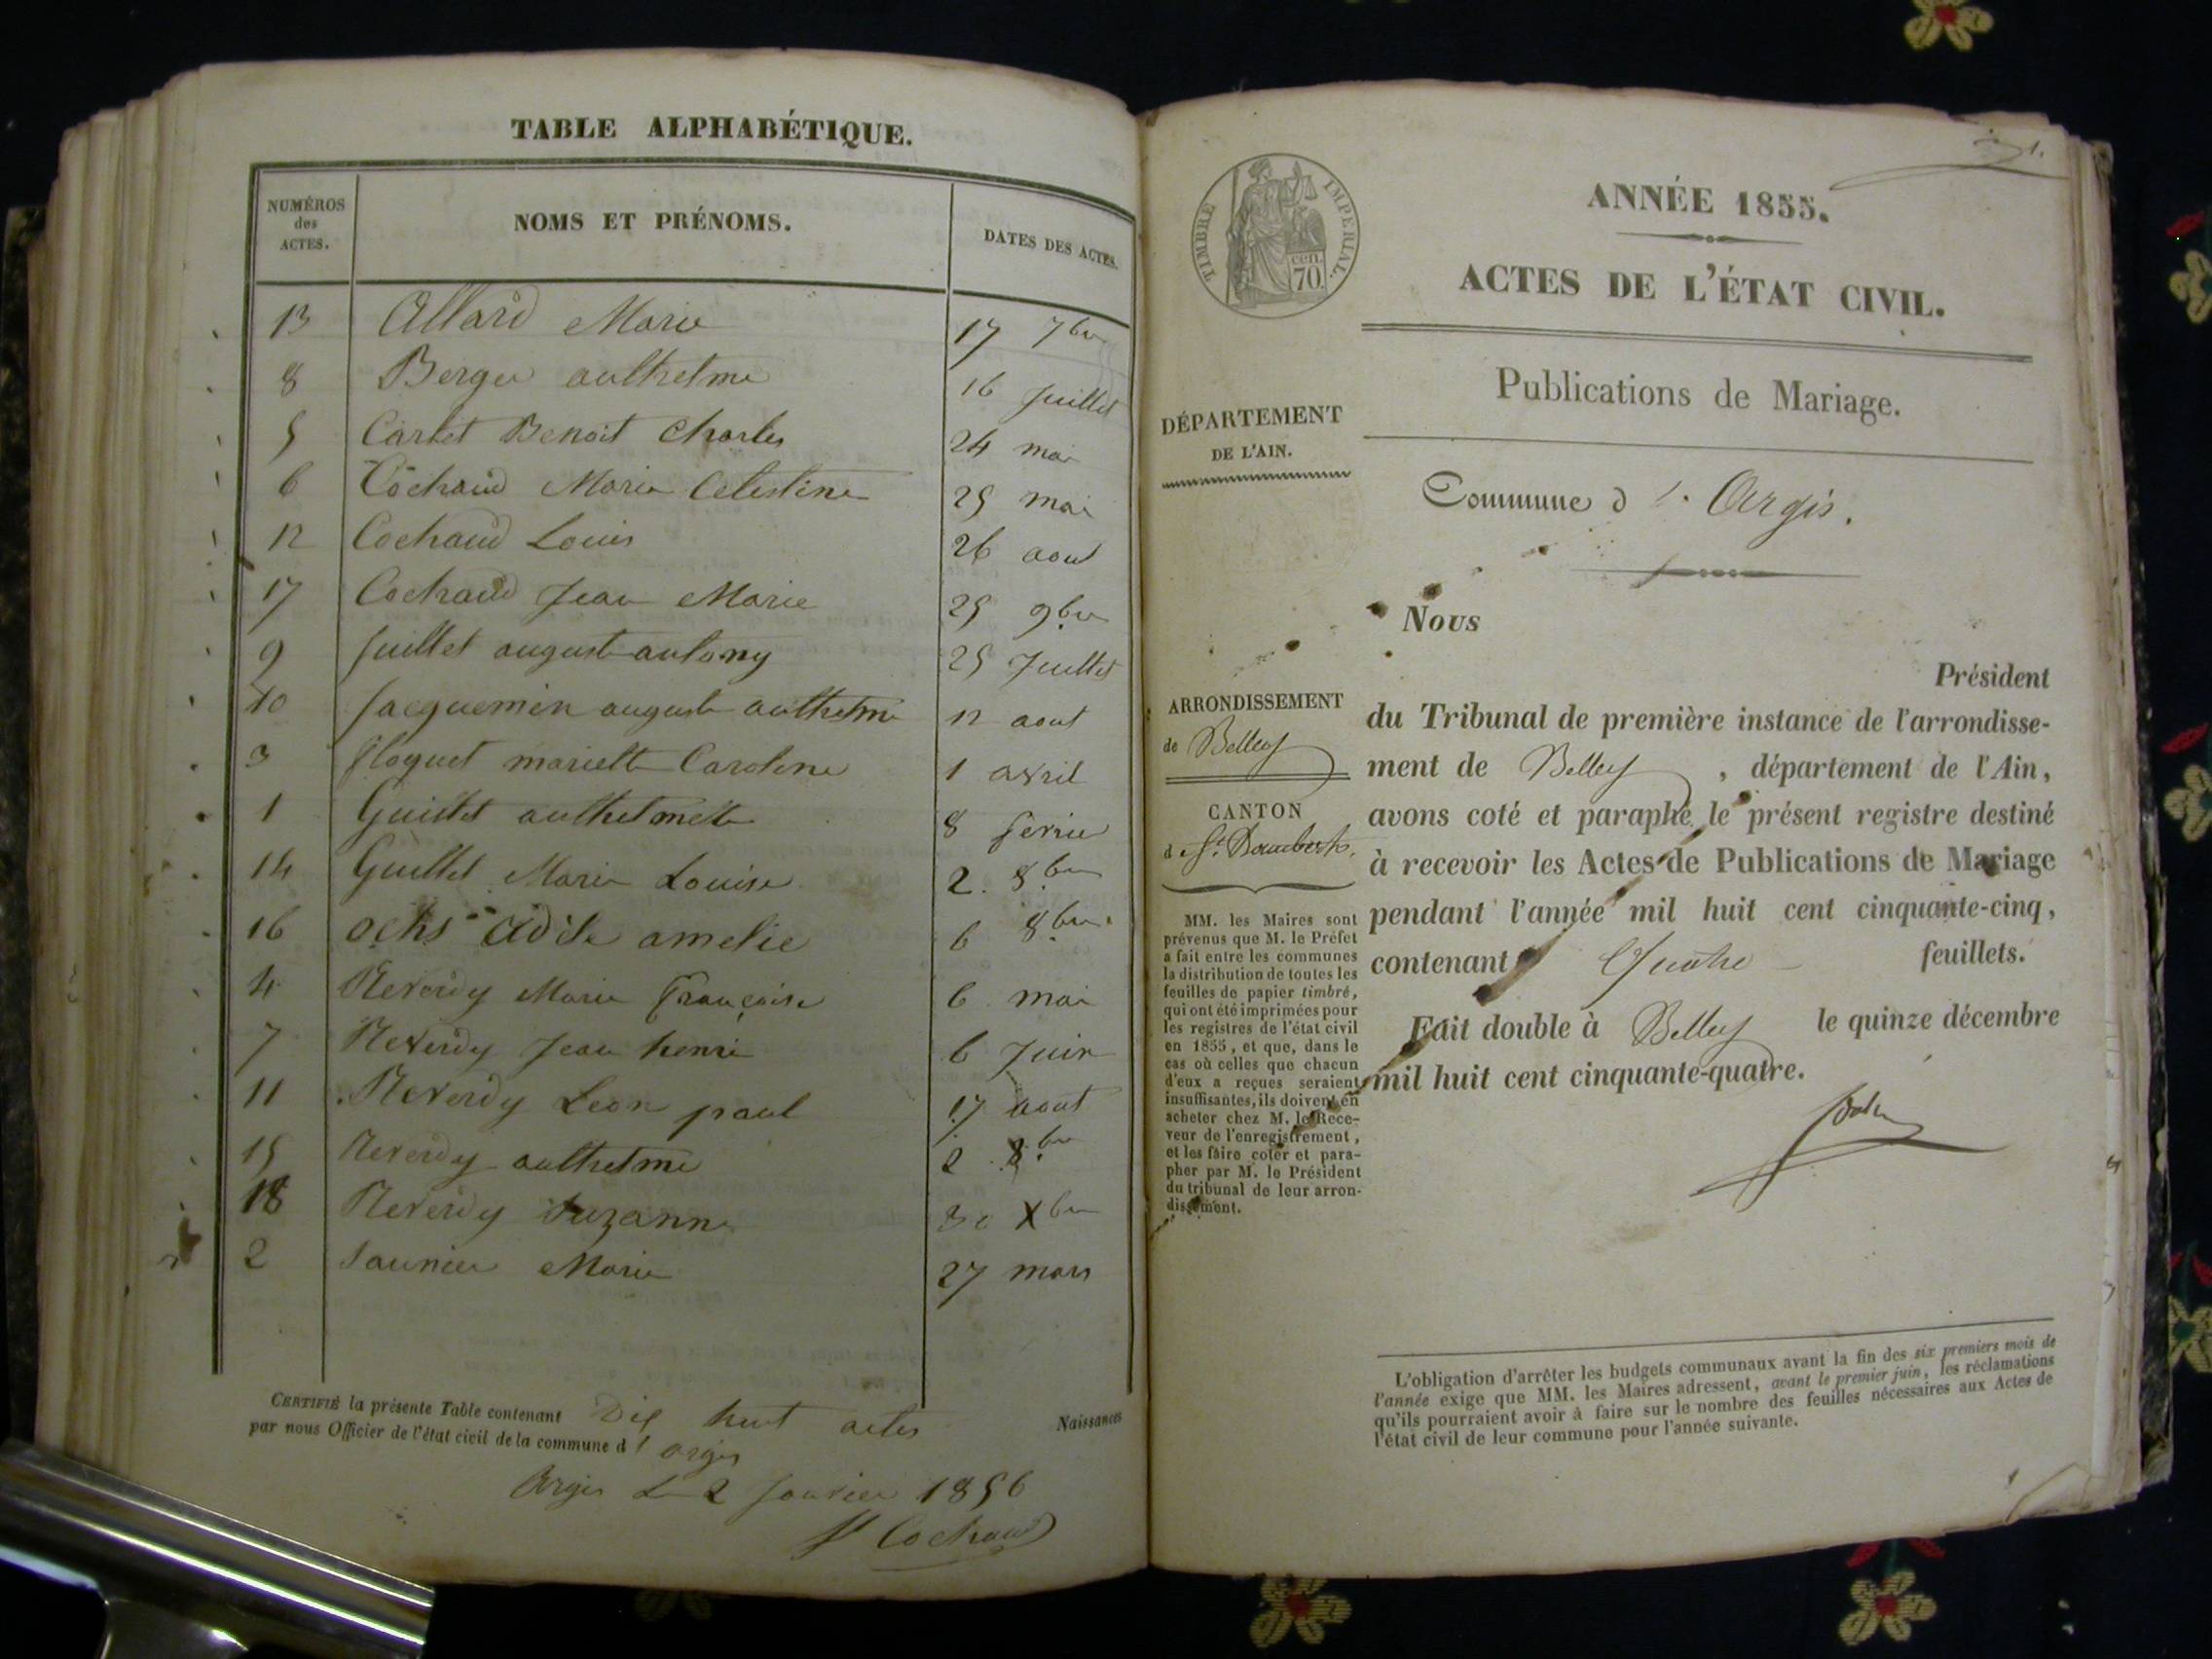 TABLE ALPHABÉTIQUE.
NUMÉROS des ACTES. NOMS ET PRÉNOMS. DATES DES ACTES.
13 Allard Marie 17 7bre
8 Berger anthelme 16 Juillet
5 Carlet Benoit Charles 24 mai
6 Cochaud Marie Celestine 25 mai
12 Cochaud Louis 26 aout
17 Cochaud Jean Marie 25 9bre
9 Juillet august antony 25 Juillet
10 Jacquemin auguste anthelme 12 aout
3 floquet mariette Caroline 1 avril
1 Guillet anthelmette 8 fevrier
14 Guillet Marie Louise 2. 8bre
16 ochs adèle amelie 6 8bre
4 Reverdy Marie françoise 6 mai
7 Reverdy Jean henri 6 Juin
11 Reverdy Leon paul 17 aout
15 Reverdy anthelme 2 8bre
18 Reverdy Suzanne 30 Xbre
2 Saunier Marie 27 mars
CERTIFIÉ la présente Table contenant Dix huit actes Naissances
par nous Officier de l'état civil de la commune d' argis
Argis Le 2 Janvier 1856
Cochaud
1.
TIMBRE IMPERIAL.
cen.
70.
ANNÉE 1855.
ACTES DE L'ÉTAT CIVIL.
Publications de Mariage.
DÉPARTEMENT
DE L'AIN.
Commune d'Argis.
Nous
Président
ARRONDISSEMENT
de Belley
CANTON
d St. Rambert.
MM. les Maires sont
prévenus que M. le Préfet
a fait entre les communes
la distribution de toutes les
feuilles de papier timbré,
qui ont été imprimées pour
les registres de l'état civil
en 1855, et que, dans le
cas où celles que chacun
d'eux a reçues seraient
insuffisantes, ils doivent en
acheter chez M. le Rece-
veur de l'enregistrement,
et les faire coter et para-
pher par M. le Président
du tribunal de leur arron-
dissement.
du Tribunal de première instance de l'arrondisse-
ment de Belley, département de l'Ain,
avons coté et paraphé le présent registre destiné
à recevoir les Actes de Publications de Mariage
pendant l'année mil huit cent cinquante-cinq,
contenant Quatre feuillets.
Fait double à Belley le quinze décembre
mil huit cent cinquante-quatre.
L'obligation d'arrêter les budgets communaux avant la fin des six premiers mois de
l'année exige que MM. les Maires adressent, avant le premier juin, les réclamations
qu'ils pourraient avoir à faire sur le nombre des feuilles nécessaires aux Actes de
l'état civil de leur commune pour l'année suivante.